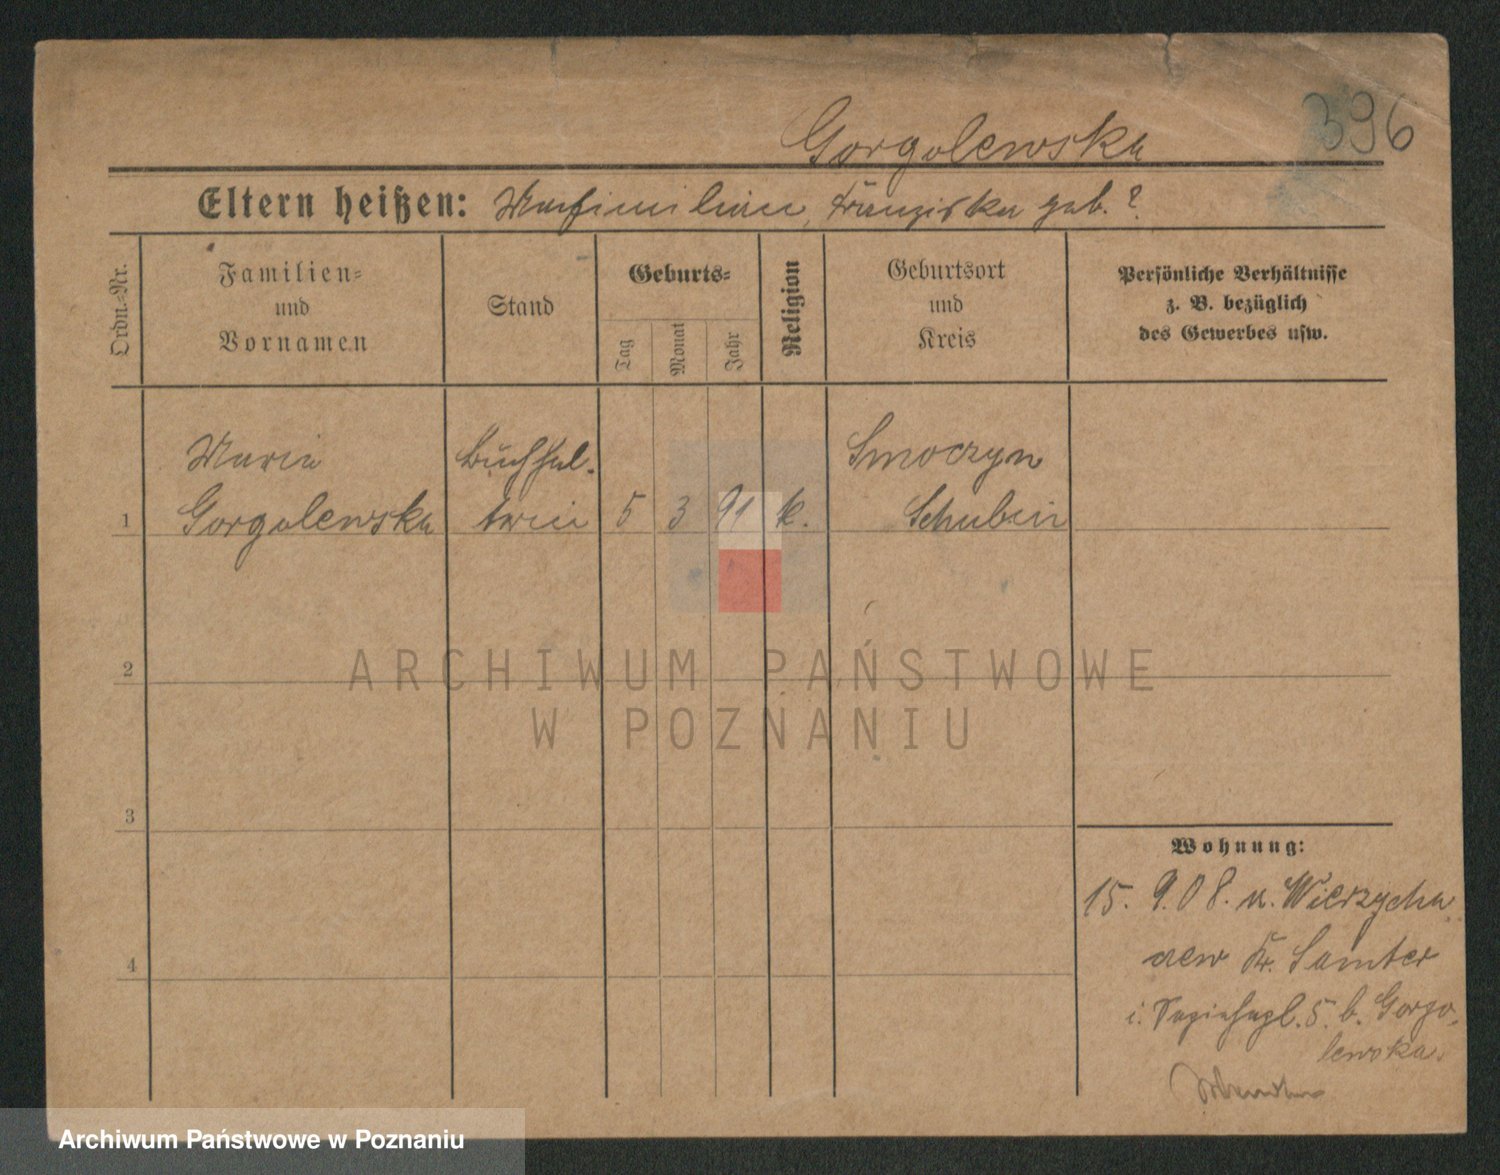 396
Gorgolewska
Eltern heißen: Maximilian, Franziska geb. ?
Ordn.-Nr.
Familien-
und
Vornamen
Stand
Geburts-
Tag
Monat
Jahr
Religion
Geburtsort
und
Kreis
Persönliche Verhältnisse
z. B. bezüglich
des Gewerbes usw.
Maria Buchhal- Smoczyn
1 Gorgolewska terin 5 3 91 k. Schubin
2
3
4
Wohnung:
15. 9. 08. n. Wierzycha
Kr. Samter
i. 5. b. Gorgo-
lewska.
ARCHIWUM PAŃSTWOWE
W POZNANIU
Archiwum Państwowe w Poznaniu